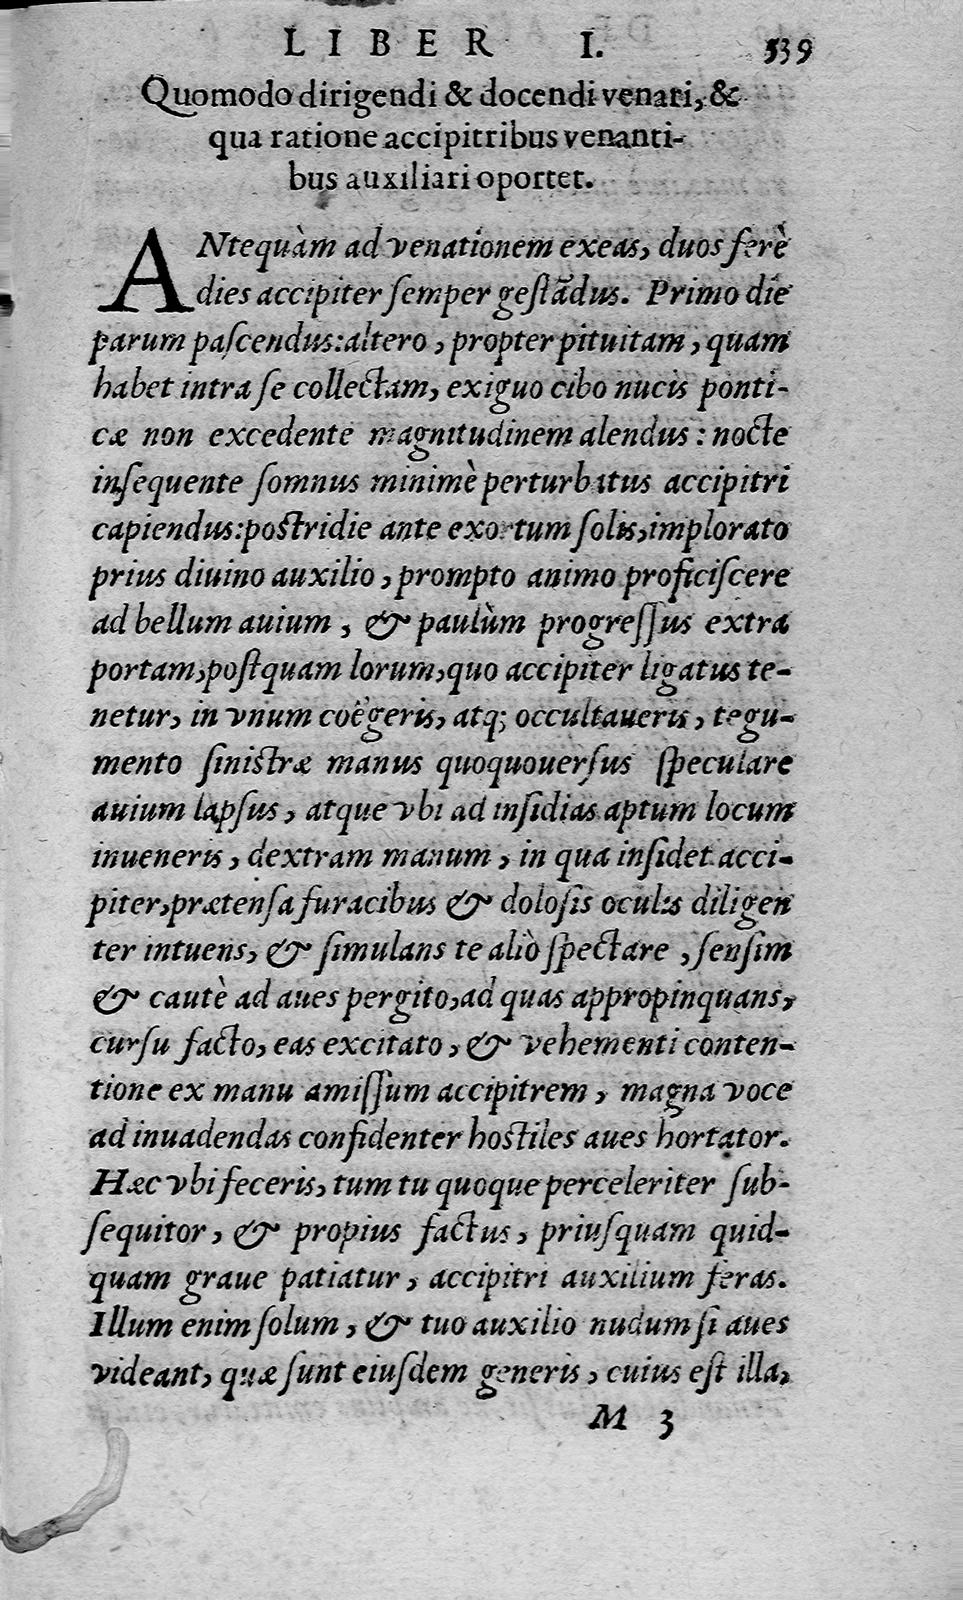 LIBER I. 539
Quomodo dirigendi & docendi venari, &
qua ratione accipitribus venanti-
bus auxiliari oportet.
ANtequàm ad venationem exeas, duos ferè
dies accipiter semper gestādus. Primo die
parum pascendus: altero, propter pituitam, quam
habet intra se collectam, exiguo cibo nucis ponti-
cæ non excedente magnitudinem alendus: nocte
insequente somnus minimè perturbatus accipitri
capiendus: postridie ante exortum solis, implorato
prius diuino auxilio, prompto animo proficiscere
ad bellum auium, & paulùm progressus extra
portam, postquam lorum, quo accipiter ligatus te-
netur, in vnum coëgeris, atq; occultaueris, tegu-
mento sinistræ manus quoquouersus speculare
auium lapsus, atque vbi ad insidias aptum locum
inueneris, dextram manum, in qua insidet acci-
piter, prætensa furacibus & dolosis oculis diligen
ter intuens, & simulans te aliò spectare, sensim
& cautè ad aues pergito, ad quas appropinquans,
cursu facto, eas excitato, & vehementi conten-
tione ex manu amissum accipitrem, magna voce
ad inuadendas confidenter hostiles aues hortator.
Hæc vbi feceris, tum tu quoque perceleriter sub-
sequitor, & propius factus, priusquam quid-
quam graue patiatur, accipitri auxilium feras.
Illum enim solum, & tuo auxilio nudum si aues
videant, quæ sunt eiusdem generis, cuius est illa,
M 3